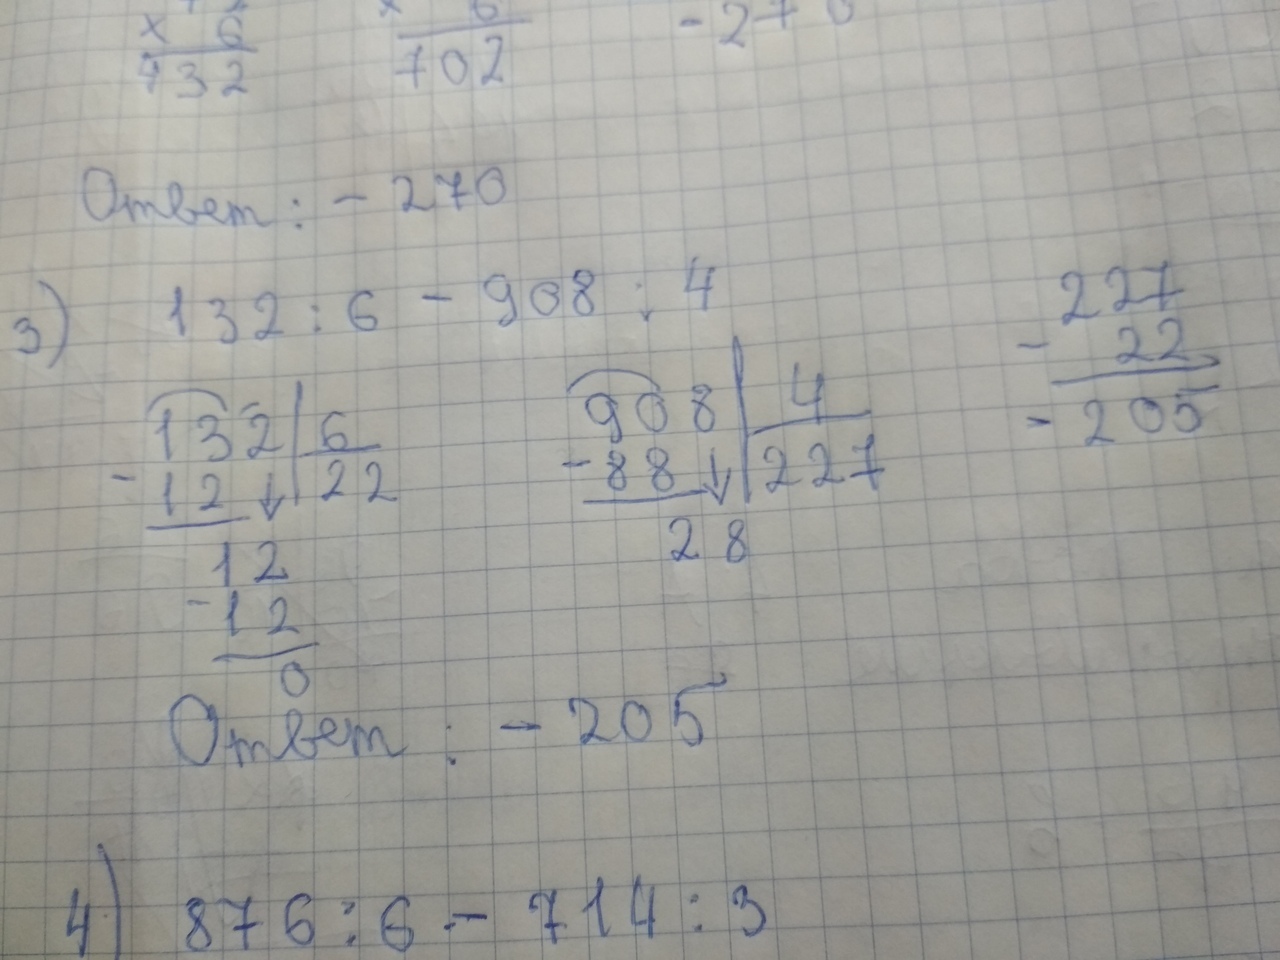 × 6
732
× 6
702
-270
Ответ: -270
3) 132 : 6 - 908 : 4
132 | 6
- 12 22
12
- 12
0
908 | 4
- 88 227
28
227
- 22
- 205
Ответ: - 205
4) 876 : 6 - 714 : 3